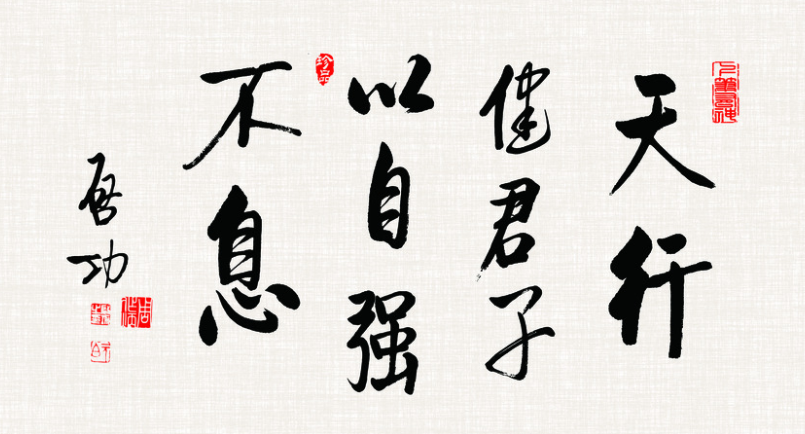 天行
健君子
以自强
不息
启功
珍品